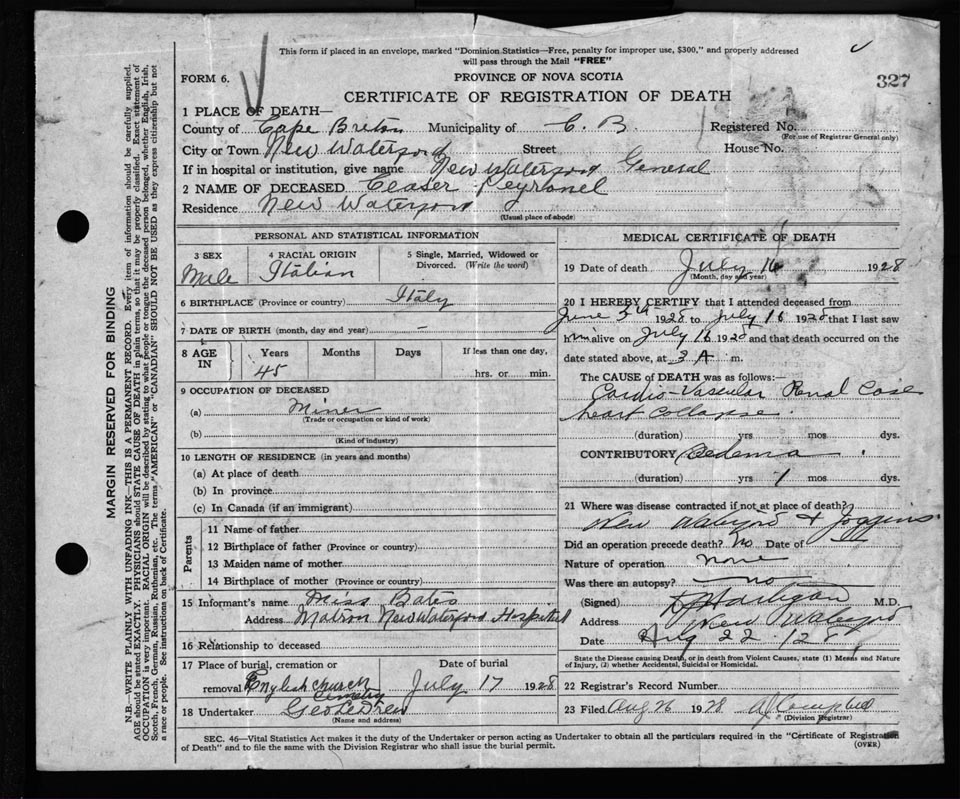 This form if placed in an envelope, marked "Dominion Statistics—Free, penalty for improper use, $300," and properly addressed
will pass through the Mail "FREE"
FORM 6.
PROVINCE OF NOVA SCOTIA
327
CERTIFICATE OF REGISTRATION OF DEATH
1 PLACE OF DEATH—
County of Cape Breton Municipality of C. B. Registered No.
(For use of Registrar General only)
City or Town New Waterford Street House No.
If in hospital or institution, give name New Waterford General
2 NAME OF DECEASED Ceaser Peyronel
Residence New Waterford
(Usual place of abode)
PERSONAL AND STATISTICAL INFORMATION
3 SEX 4 RACIAL ORIGIN 5 Single, Married, Widowed or
Divorced. (Write the word)
Male Italian
6 BIRTHPLACE (Province or country) Italy
7 DATE OF BIRTH (month, day and year) —
8 AGE IN Years Months Days If less than one day,
45 hrs. or min.
9 OCCUPATION OF DECEASED
(a) Miner
(Trade or occupation or kind of work)
(b)
(Kind of industry)
10 LENGTH OF RESIDENCE (in years and months)
(a) At place of death
(b) In province
(c) In Canada (if an immigrant)
Parents
11 Name of father
12 Birthplace of father (Province or country)
13 Maiden name of mother
14 Birthplace of mother (Province or country)
15 Informant's name Miss Bates
Address Matron New Waterford Hospital
16 Relationship to deceased
17 Place of burial, cremation or Date of burial
removal English Church Cemetry July 17 1928
18 Undertaker Geo
(Name and address)
MEDICAL CERTIFICATE OF DEATH
19 Date of death July 16 1928
(Month, day and year)
20 I HEREBY CERTIFY that I attended deceased from
June 5th 1928 to July 16 1928 that I last saw
him alive on July 16 1928 and that death occurred on the
date stated above, at 3 A m.
The CAUSE of DEATH was as follows:—
Cardio-Vascular Renal Case
heart collapse.
(duration) yrs mos dys.
CONTRIBUTORY Oedema
(duration) yrs 1 mos dys.
21 Where was disease contracted if not at place of death?
New Waterford & Joggins
Did an operation precede death? No Date of
Nature of operation none
Was there an autopsy? no
(Signed) Hartigan M.D.
Address New Waterford
Date Aug 22 . 128
State the Disease causing Death, or in death from Violent Causes, state (1) Means and Nature
of Injury, (2) whether Accidental, Suicidal or Homicidal.
22 Registrar's Record Number
23 Filed Aug 26 1928 A J Campbell
(Division Registrar)
SEC. 46—Vital Statistics Act makes it the duty of the Undertaker or person acting as Undertaker to obtain all the particulars required in the "Certificate of Registration
of Death" and to file the same with the Division Registrar who shall issue the burial permit.
(OVER)
MARGIN RESERVED FOR BINDING
N.B.—WRITE PLAINLY WITH UNFADING INK—THIS IS A PERMANENT RECORD. Every item of information should be carefully supplied.
AGE should be stated EXACTLY. PHYSICIANS should STATE CAUSE OF DEATH in plain terms, so that it may be properly classified. Exact statement of
OCCUPATION is very important. RACIAL ORIGIN will be described by stating to what people or tongue the deceased person belonged, whether English, Irish,
Scotch, French, German, Russian, Ruthenian, etc. The terms "AMERICAN" or "CANADIAN" SHOULD NOT BE USED as they express citizenship but not
a race or people. See instructions on back of Certificate.